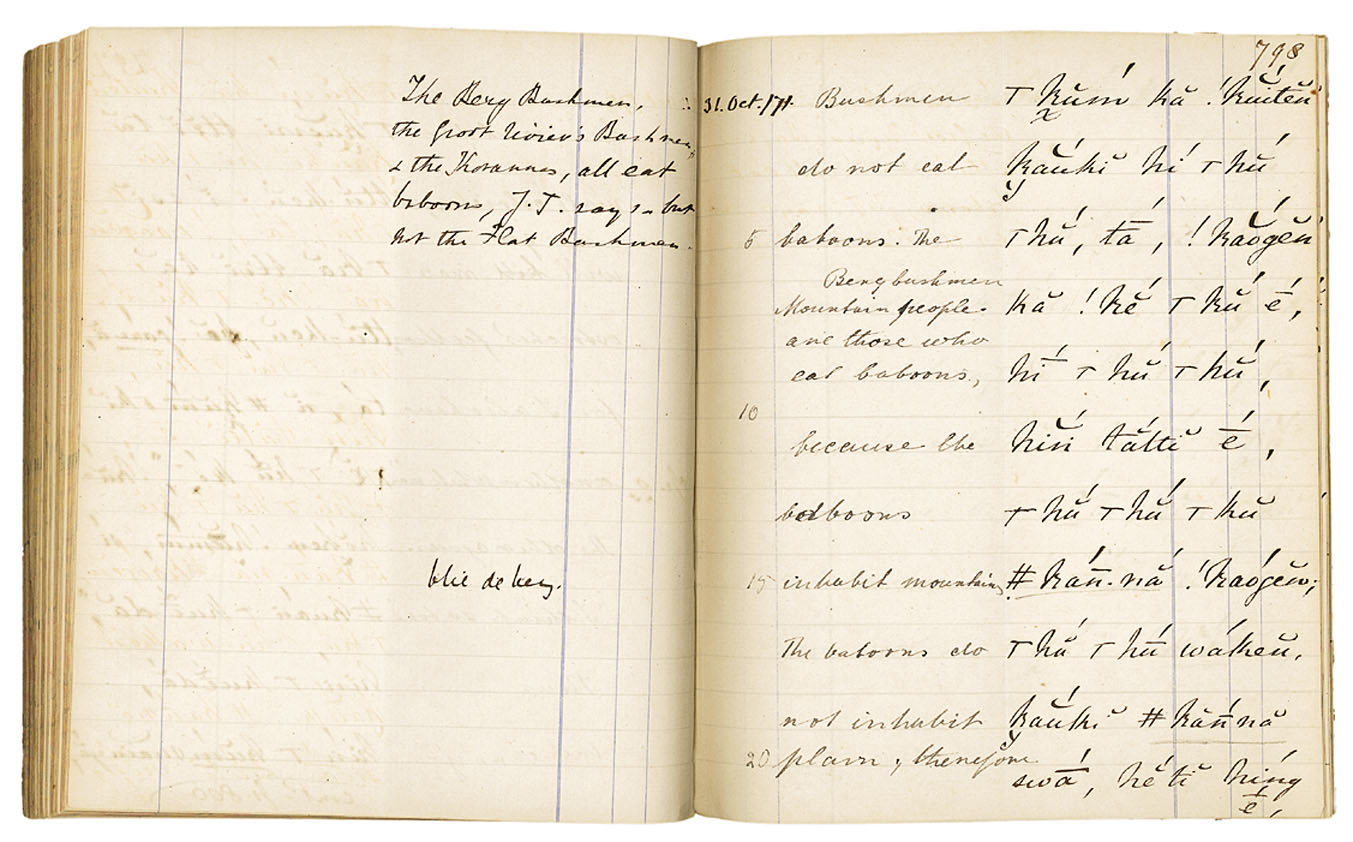 The Berg Bushmen,
the Groot Rivier's Bushmen,
& the Korannas, all eat
baboons, J.T. says - but
not the Flat Bushmen.
blie de berg.
798
31. Oct. /71. Bushmen ⊤ k̆úm kă ! kŭíten
do not eat kăúki hĭ ⊤ hŭ́
5 baboons. The ⊤ hŭ́, tā́, ! kăógĕn
Berg bushmen
Mountain people kă ! kĕ́ ⊤ kŭ́ ḗ,
are those who
eat baboons, hī́ ⊤ hŭ́ ⊤ hŭ́,
10
because the hĭń tắtĭ ḗ,
baboons ⊤ hŭ́ ⊤ hŭ́ ⊤ kŭ
15 inhabit mountains ǂ kăń̄-nắ ! kăógĕn;
The baboons do ⊤ hŭ́ ⊤ hū́ wákĕn,
not inhabit kăúkĭ ǂ kăń̄nă
20 plain; therefore swā́, hĕ́ tĭ híng
ḗ,